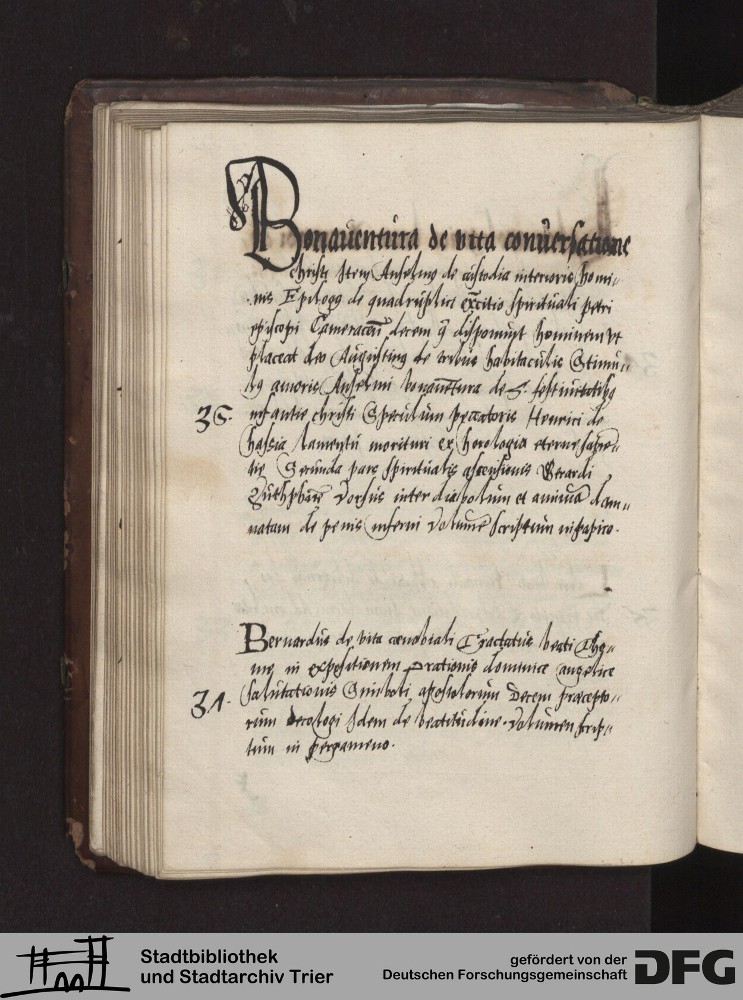 Bonaventura de vita conversatione
christi Item Anselmus de custodia interioris homi„
nis Epilogg de quadruplici exercitio spirituali petri
episcopi Cameracen decem q disponunt hominem vt
placeat deo Augusting de tribus habitaculis Stimu„
lg amoris Anselmi bonauentura de S. festiuitatibg
35. infantie christi Speculum peccatoris Henrici de
hassia lamentū morituri ex horologio eterne sapie„
tie Secunda pars spiritualis ascensionis Gerardi
Zutphanie Versus inter diabolum et animā dam„
natam de penis inferni Volumē scriptum in papiro.
Bernardus de vita cœnobiali Tractatus beati Tho„
me in expositionem orationis dominice angelice
31. salutationis Simboli apostolorum Decem præcepto„
rum decalogi Idem de beatitudine. Volumen scrip„
tum in pergameno.
Stadtbibliothek
und Stadtarchiv Trier
gefördert von der
Deutschen Forschungsgemeinschaft
DFG